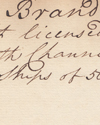 Brand
t licensed
th Channe
Ships of 50